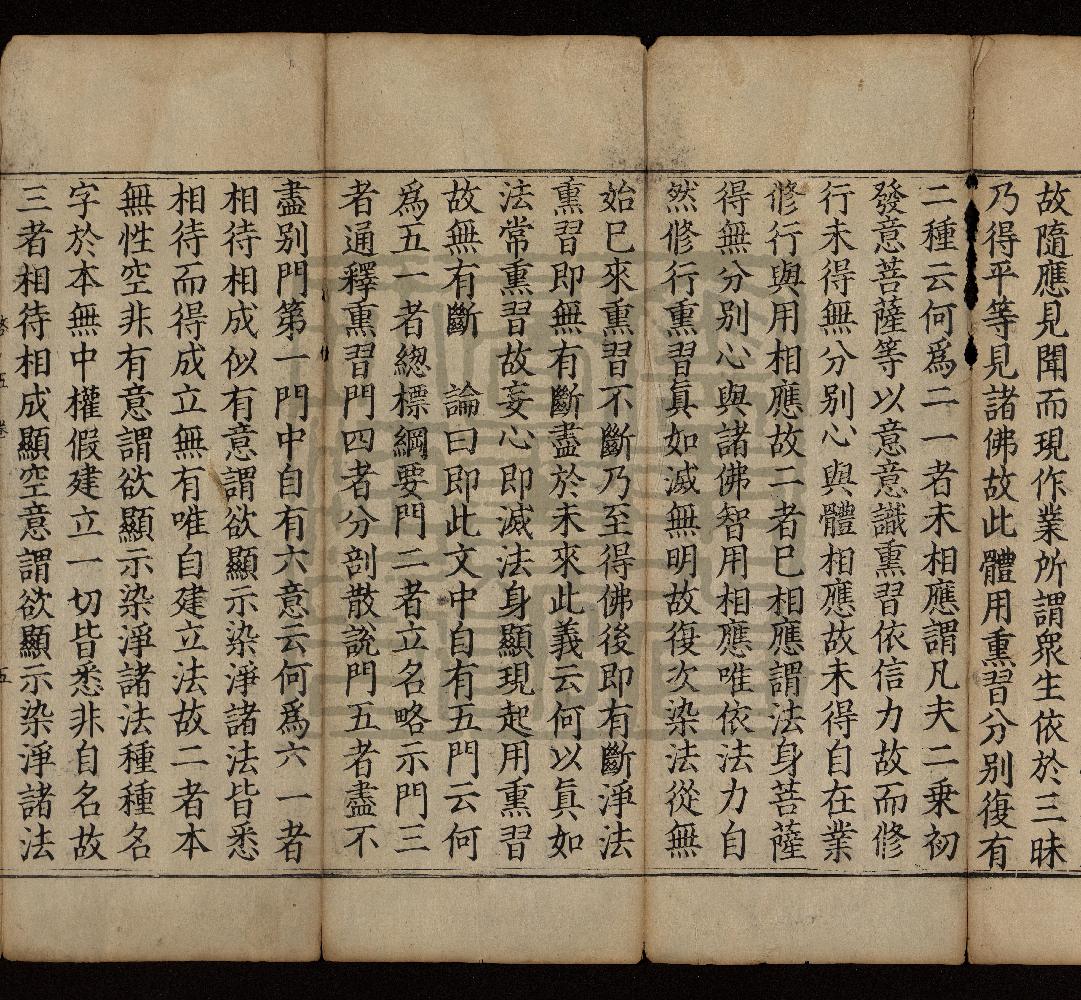 故隨應見聞而現作業所謂衆生依於三昧
乃得平等見諸佛故此體用熏習分别復有
二種云何爲二一者未相應謂凡夫二乗初
發意菩薩等以意意識熏習依信力故而修
行未得無分别心與體相應故未得自在業
修行與用相應故二者巳相應謂法身菩薩
得無分别心與諸佛智用相應唯依法力自
然修行熏習眞如滅無明故復次染法從無
始巳來熏習不斷乃至得佛後即有斷淨法
熏習即無有斷盡於未來此義云何以眞如
法常熏習故妄心即滅法身顯現起用熏習
故無有斷　論曰即此文中自有五門云何
爲五一者總標綱要門二者立名略示門三
者通釋熏習門四者分剖散說門五者盡不
盡别門第一門中自有六意云何爲六一者
相待相成似有意謂欲顯示染淨諸法皆悉
相待而得成立無有唯自建立法故二者本
無性空非有意謂欲顯示染淨諸法種種名
字於本無中權假建立一切皆悉非自名故
三者相待相成顯空意謂欲顯示染淨諸法